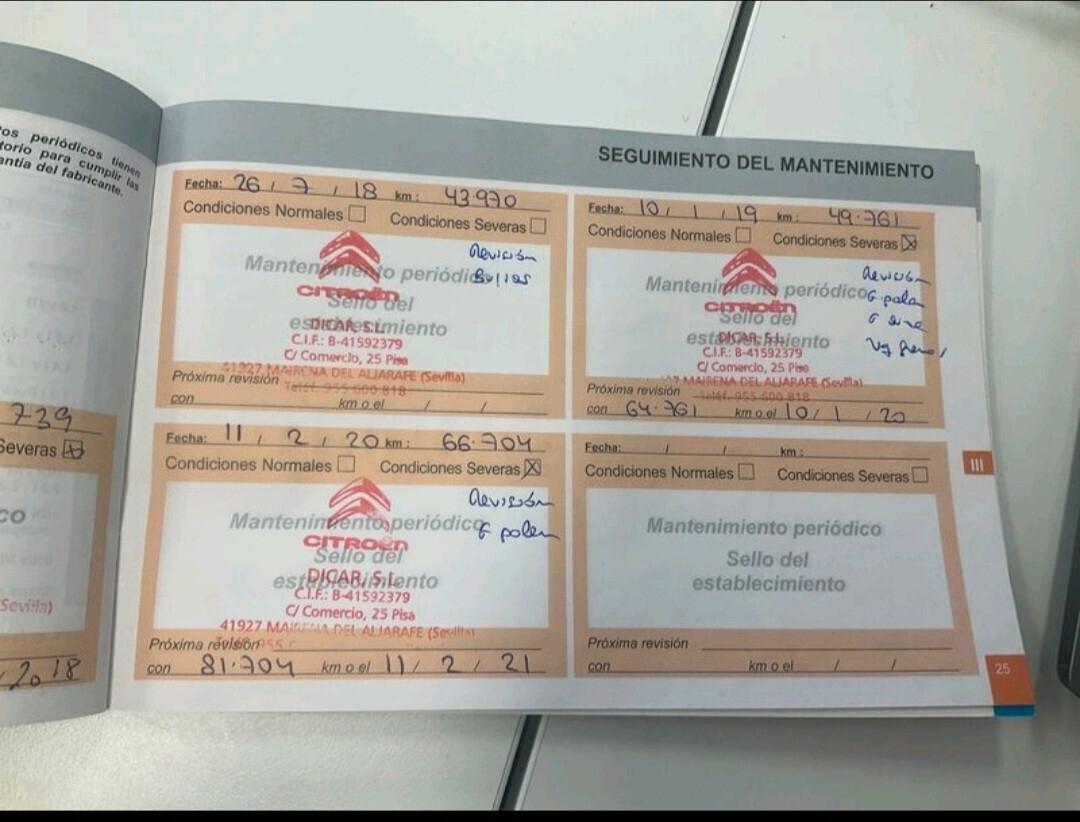 os periódicos tienen
torio para cumplir las
antía del fabricante.
739
Severas ☒
CO
Sevilla)
2018
SEGUIMIENTO DEL MANTENIMIENTO
Fecha: 26 / 7 / 18 km: 43.970
Condiciones Normales ☐ Condiciones Severas ☐
Revisión
Mantenimiento periódico
CITROËN
Sello del
establecimiento
DICAR, S.L.
C.I.F.: B-41592379
C/ Comercio, 25 Pisa
41927 MAIRENA DEL ALJARAFE (Sevilla)
Próxima revisión
Teléf. 955 600 818
con km o el / /
Fecha: 10 / 1 / 19 km: 49.761
Condiciones Normales ☐ Condiciones Severas ☒
Revisión
Mantenimiento periódico
polen
CITROËN
Sello del
establecimiento
DICAR, S.L.
C.I.F.: B-41592379
C/ Comercio, 25 Pisa
MAIRENA DEL ALJARAFE (Sevilla)
Próxima revisión
Teléf. 955 600 818
con 64.761 km o el 10 / 1 / 20
Fecha: 11 / 2 / 20 km: 66.704
Condiciones Normales ☐ Condiciones Severas ☒
Revisión
Mantenimiento periódico
polen
CITROËN
Sello del
establecimiento
DICAR, S.L.
C.I.F.: B-41592379
C/ Comercio, 25 Pisa
41927 MAIRENA DEL ALJARAFE (Sevilla)
Próxima revisión
con 81.704 km o el 11 / 2 / 21
Fecha: / / km:
Condiciones Normales ☐ Condiciones Severas ☐
Mantenimiento periódico
Sello del
establecimiento
Próxima revisión
con km o el / /
III
25